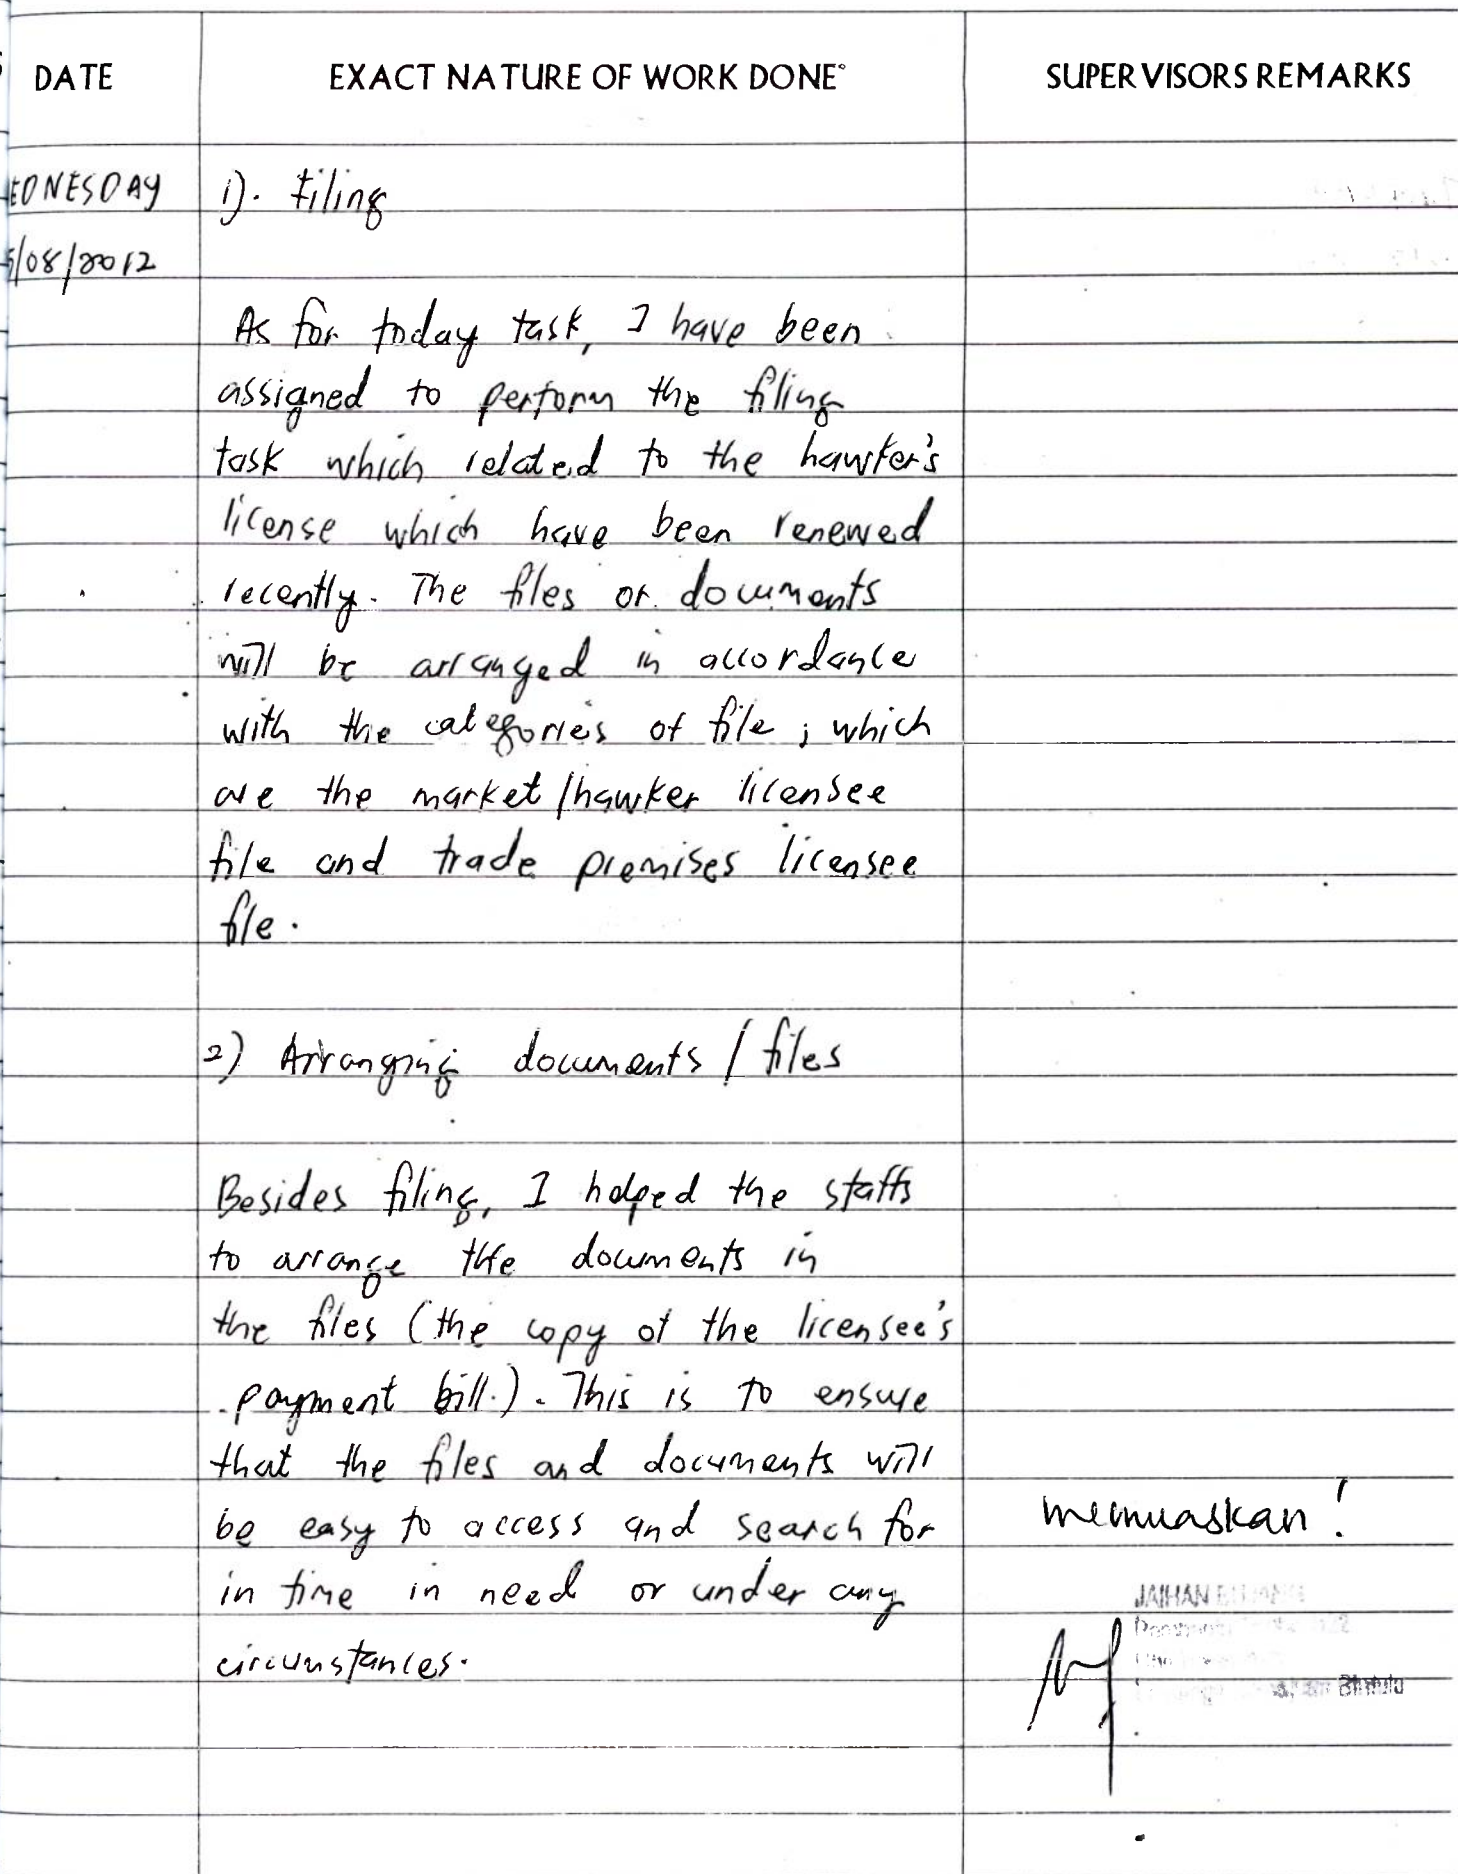 DATE EXACT NATURE OF WORK DONE SUPERVISORS REMARKS
EDNESDAY 1). Filing
/08/2012
As for today task, I have been
assigned to perform the filing
task which related to the hawker's
license which have been renewed
recently. The files or documents
will be arranged in accordance
with the categories of file; which
are the market/hawker licensee
file and trade premises licensee
file.
2) Arranging documents / files
Besides filing, I helped the staffs
to arrange the documents in
the files (the copy of the licensee's
payment bill.). This is to ensure
that the files and documents will
be easy to access and search for
memuaskan!
in time in need or under any
JAIHAN
circumstances.
Bintulu